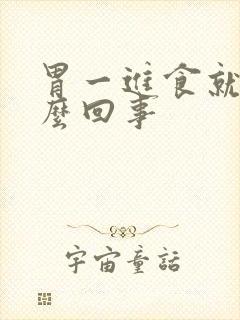 胃一進食就
麼回事
宇宙童話